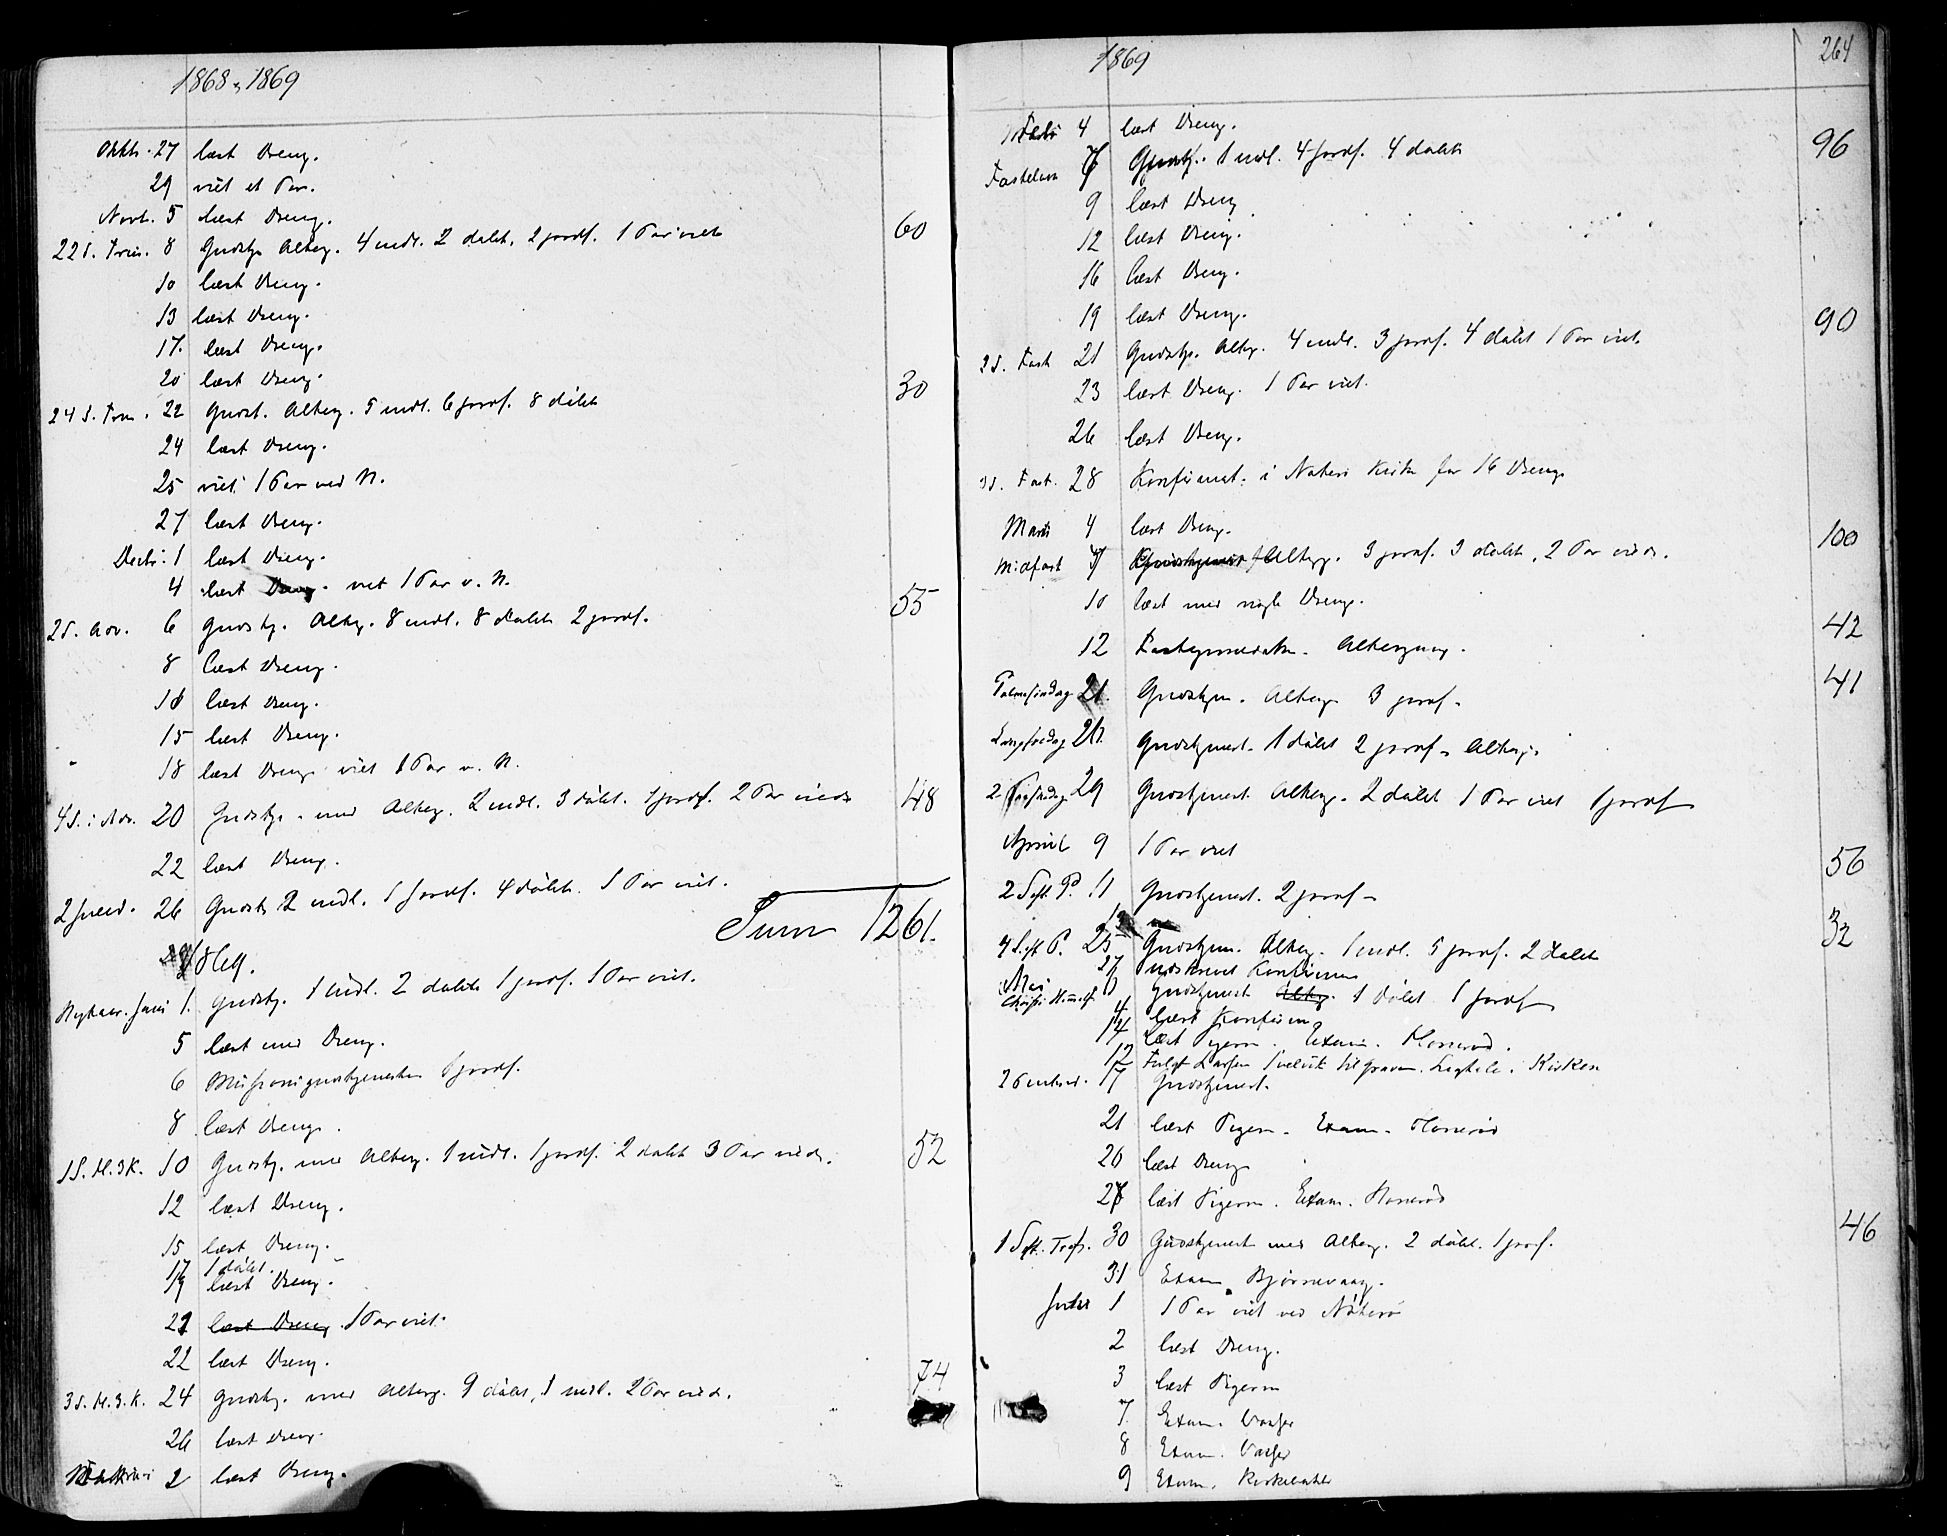 1868 & 1869
Oktb. 27 læst Dreng.
29 viet et Par.
Novb. 5 læst Dreng.
22 S. Trin. 8 Gudstj. Alterg. 4 indl. 2 døbt. 2 jordf. 1 Par viet 60
10 læst Dreng.
13 læst Dreng.
17. læst Dreng.
20 læst Dreng.
24 S. Trin. 22 Gudst. Alterg. 5 indl. 6 jordf. 8 døbt 30
24 læst Dreng.
25 viet 1 Par ved N.
27 læst Dreng.
Decbr. 1 læst Dreng.
4 læst Dreng. viet 1 Par v. N.
2 S. Adv. 6 Gudstj. Alterg. 8 indl. 8 døbt 2 jordf. 55
8 læst Dreng.
11 læst Dreng.
15 læst Dreng.
18 læst Dreng viet 1 Par v. N.
4 S. i Adv. 20 Gudstj. med Alterg. 2 indl. 3 døbt. 1 jordf. 2 Par viede 48
22 læst Dreng.
2 Juled. 26 Gudst. 2 indl. 1 jordf. 4 døbt. 1 Par viet.
Sum 1261.
1869.
Nytaar. Jani 1. Gudstj. 1 indl. 2 døbt 1 jordf. 1 Par viet.
5 læst med Dreng.
6 Missionsgudstjeneste 1 jordf.
8 læst Dreng.
1 S. H. 3 K. 10 Gudstj. med Alterg. 1 indl. 1 jordf. 2 døbt 3 Par viede. 52
12 læst Dreng.
15 læst Dreng.
17 1 døbt.
19 læst Dreng.
21 læst Dreng. 1 Par viet.
22 læst Dreng.
3 S. H. 3. K. 24 Gudstj. med Alterg. 9 døbt, 1 indl. 2 Par vied. 74
26 læst Dreng.
2 læst Dreng.
1869 264
Febr 4 læst Dreng.
Fastelavn 7 Gudstj. 1 indl. 4 jordf. 4 døbt 96
9 læst Dreng
12 læst Dreng.
16 læst Dreng.
19 læst Dreng.
2 S. Fast 21 Gudstj. Alterg. 4 indl. 3 jordf. 4 døbt 1 Par viet. 90
23 læst Dreng. 1 Par viet.
26 læst Dreng.
3 S. Fast. 28 Konfirmat. i Nøterø Kirke for 16 Dreng.
Marts 4 læst Dreng.
Midfast 7 Alterg. 3 jordf. 3 døbt, 2 Par viede. 100
10 læst med nogle Drenge.
12 Fastepræken. Altergang. 42
Palmesøndag 21. Gudstjen. Alterg 3 jordf. 41
Langfredag 26. Gudstjenest. 1 døbt 2 jordf. Alterg.
2. Paaskedag 29 Gudstjenest. Alterg. 2 døbt 1 Par viet 1 jordf
April 9 1 Par viet
2 S. eft P. 11 Gudstjenest. 2 jordf. 56
4 S. eft P. 25 Gudstjen. Alterg. 1 indl. 5 jordf. 2 døbt 32
27 indskrevet Konfirm
Mai
Christi Himmelf 6 Gudstjenest Alterg. 1 døbt 1 jordf
læst Konfirm
14 læst Pigerne. Exam.
12 Fulgt Larsen til Graven. Ligtale i Kirken
2 Pintsed. 17 Gudstjenest.
21 læst Pigern. Exam.
20 læst Dreng
28 læst Pigerne. Exam.
1 S. eft. Tref. 30 Gudstjenest med Alterg. 2 døbt. 1 jordf. 46
31 Exam Bjørnevaag.
Juni 1 1 Par viet ved Nøterø
2 læst Dreng.
3 læst Pigerne
7. Exam.
8 Exam.
9 Exam.